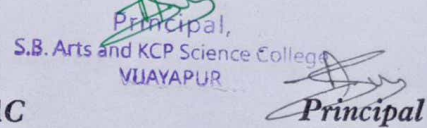 Principal,
S.B. Arts and KCP Science College
VIJAYAPUR
C
Principal